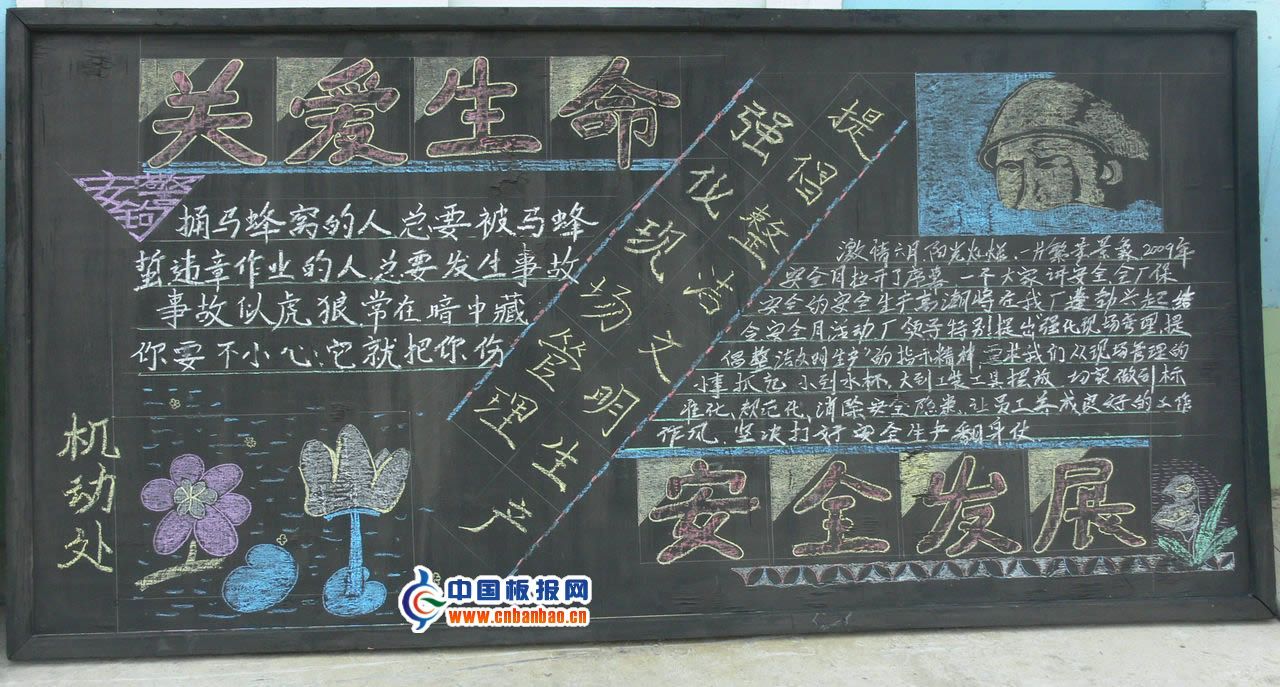 关爱生命
安全警钟
捅马蜂窝的人总要被马蜂
蜇违章作业的人总要发生事故
事故似虎狼常在暗中藏
你要不小心:它就把你伤
机动处
强化现场管理
提倡整洁文明生产
激情六月阳光灿烂、一片繁荣景象2009年
安全月拉开了序幕、一个大家讲安全会厂保
安全的安全生产高潮将在我厂蓬勃兴起结
合安全月活动厂领导特别提出"强化现场管理,提
倡整洁文明生产"的指示精神要求我们从现场管理的
小事抓起、小到水杯、大到工装工具摆放、切实做到标
准化、规范化、消除安全隐患、让员工养成良好的工作
作风、坚决打好安全生产翻身仗
安全发展
中国板报网
www.cnbanbao.cn